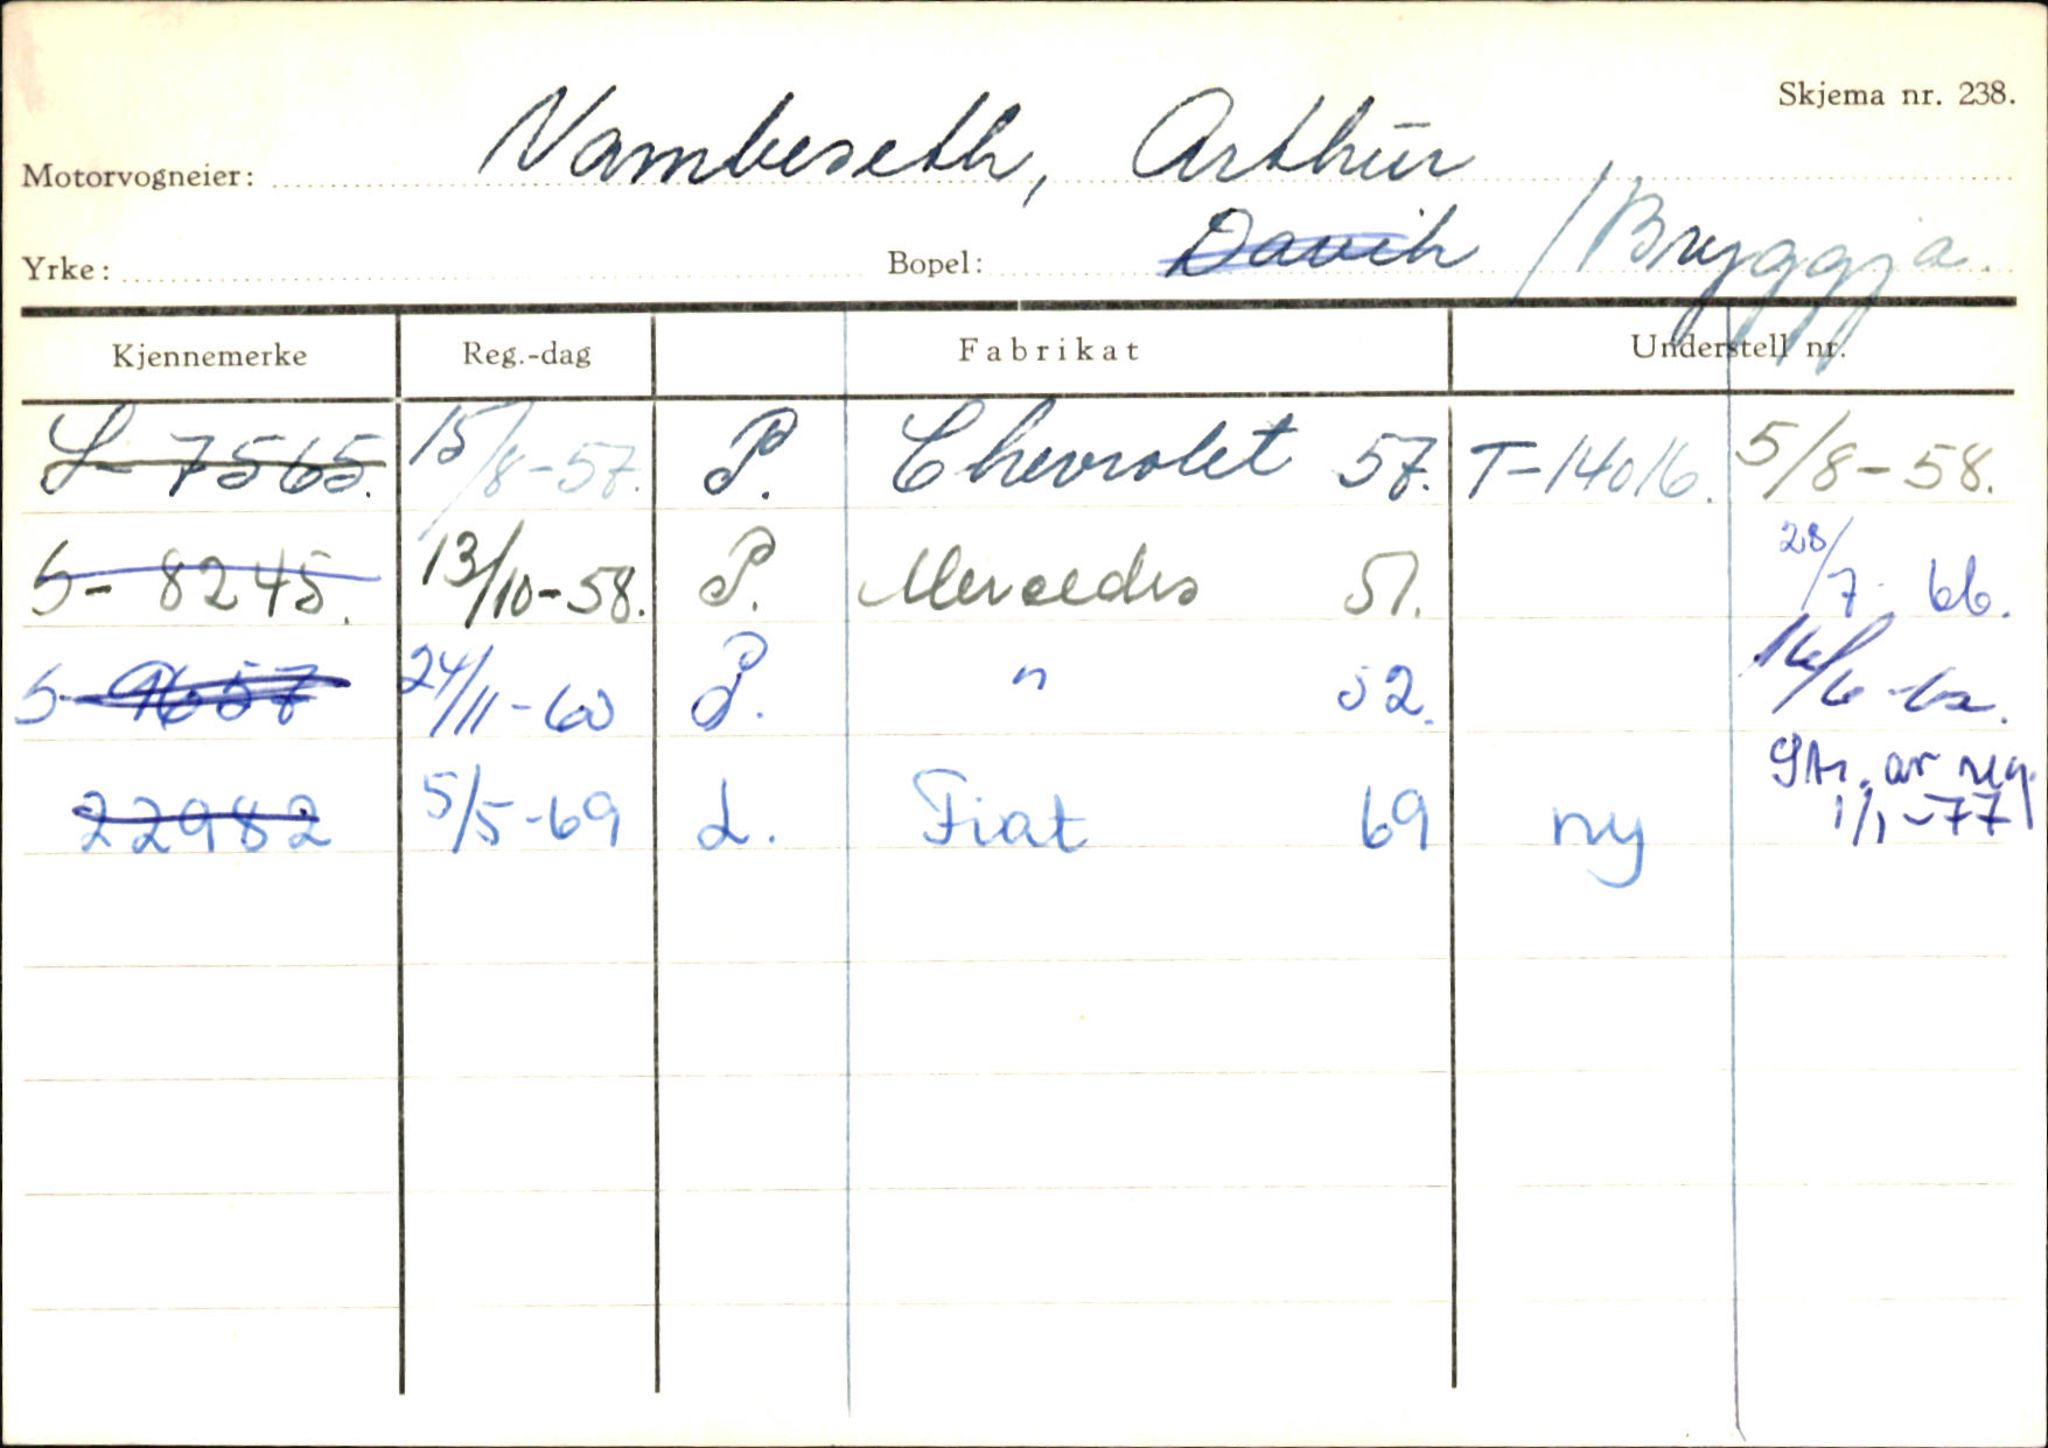 Skjema nr. 238.
Motorvogneier: Vambeseth, Arthur
Yrke: Bopel: Davik / Bryggja.
Kjennemerke Reg.-dag Fabrikat Understell nr.
S-7565. 15/8-57. P. Chevrolet 57. T-14016. 5/8-58.
S-8245. 13/10-58. P. Mercedes 51. 28/7-66.
S-9657 24/11-60 P. " 52. 16/6-62.
22982 5/5-69 L. Fiat 69 ny Str. av reg. 1/1-77